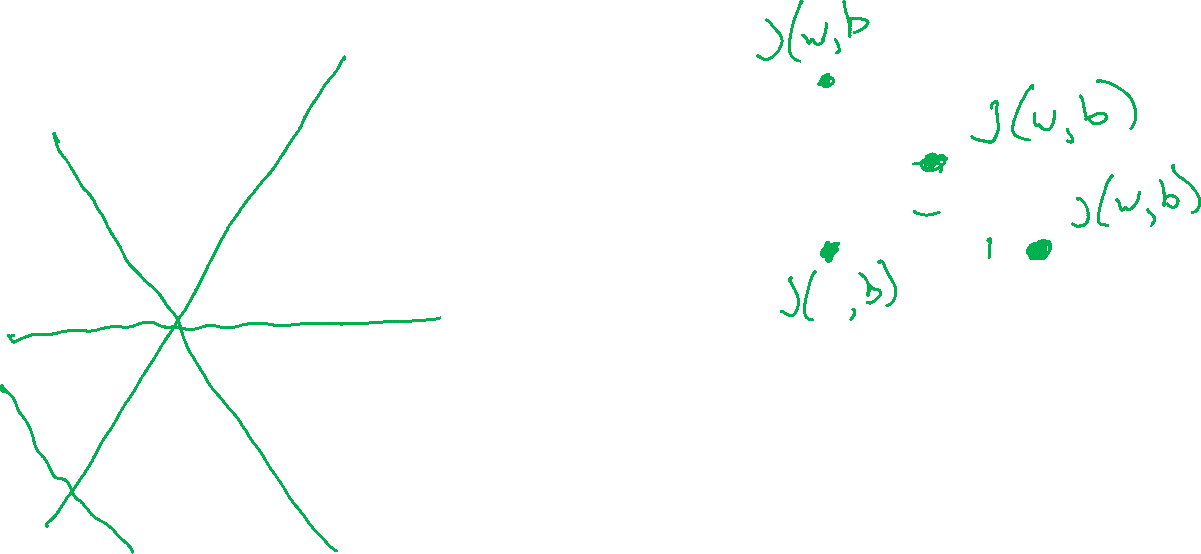 J(w,b
J(w,b)
J(w,b)
J( ,b)